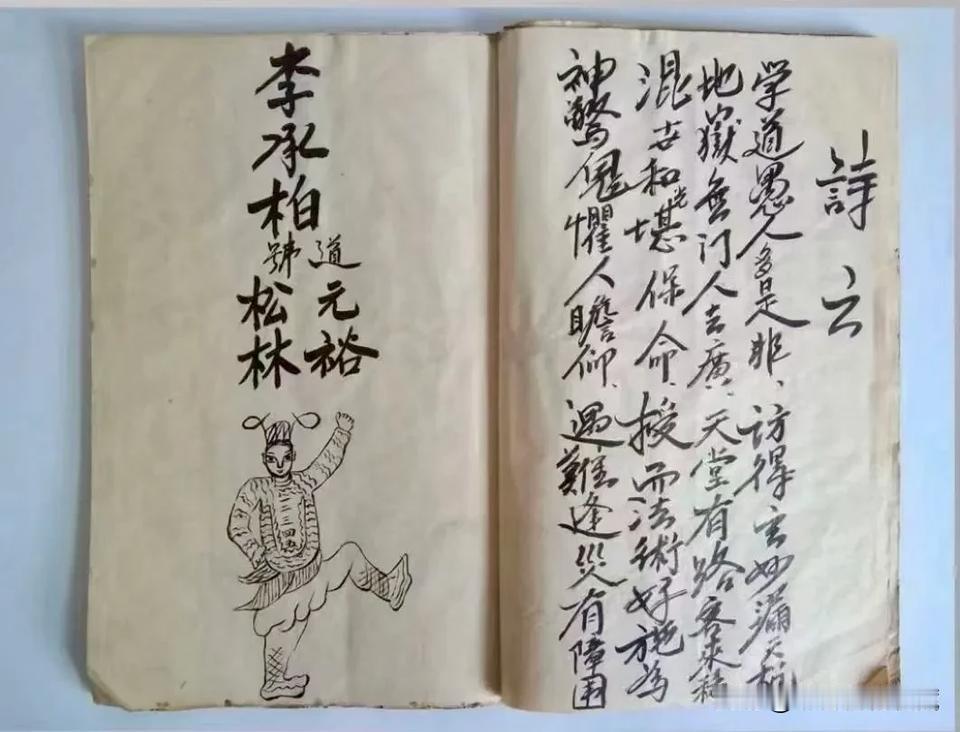 詩云
学道愚人多是非、访得玄妙漏天机
地獄無门人去廣、天堂有路客来稀
混世和光堪保命、授而法術好施為
神驚鬼懼人瞻仰、遇難逢災有障
李承柏
道元裕
號松林